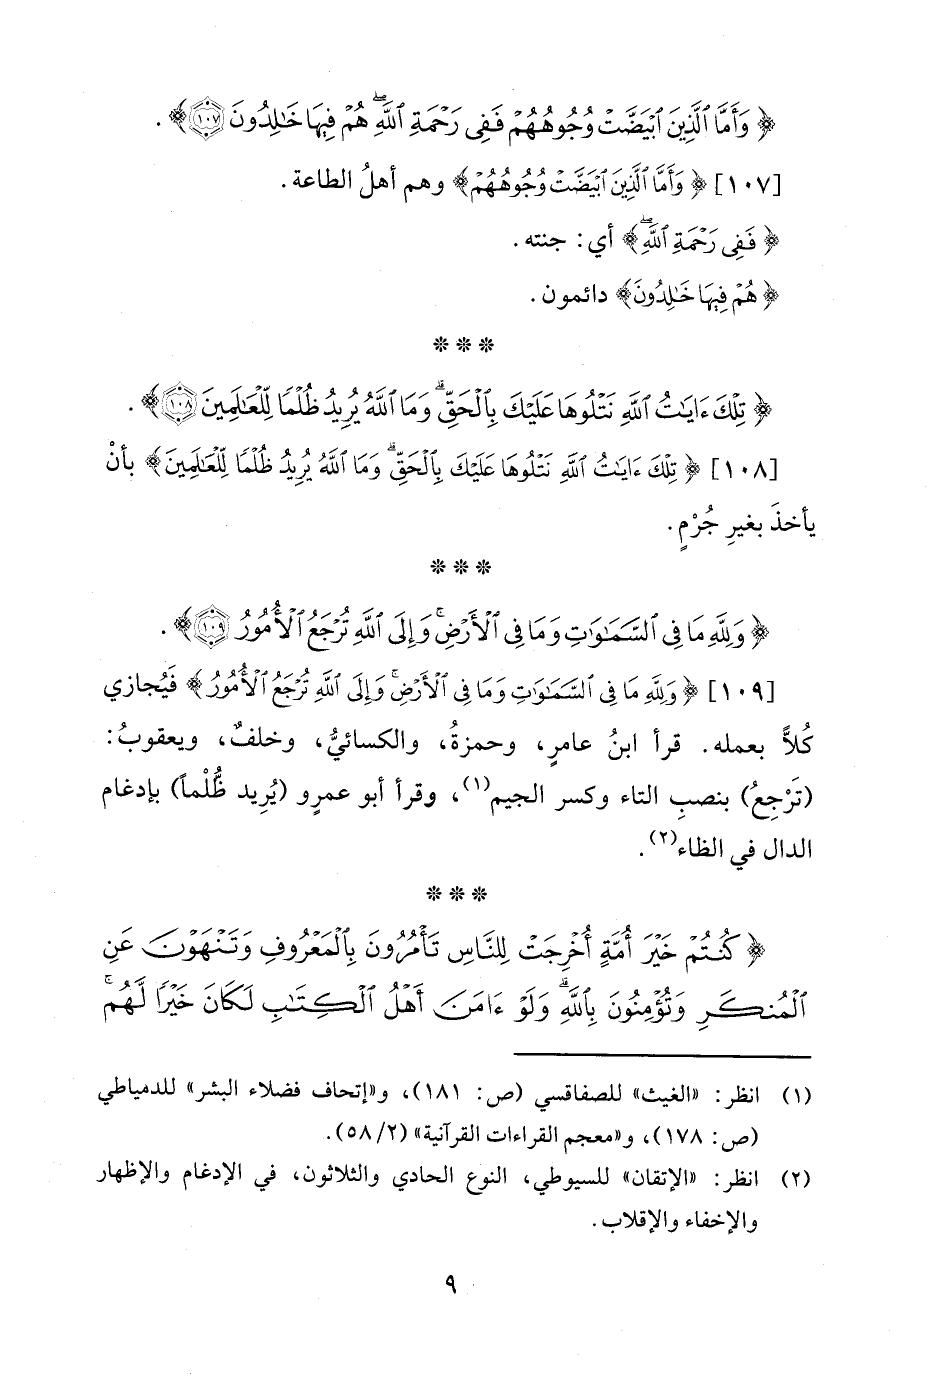 ﴿ وَأَمَّا ٱلَّذِينَ ٱبْيَضَّتْ وُجُوهُهُمْ فَفِى رَحْمَةِ ٱللَّهِۖ هُمْ فِيهَا خَٰلِدُونَ ١٠٧﴾ .
[١٠٧] ﴿ وَأَمَّا ٱلَّذِينَ ٱبْيَضَّتْ وُجُوهُهُمْ﴾ وهم أهلُ الطاعة .
﴿ فَفِى رَحْمَةِ ٱللَّهِۖ﴾ أي: جنته .
﴿ هُمْ فِيهَا خَٰلِدُونَ﴾ دائمون .
* * *
﴿ تِلْكَ ءَايَٰتُ ٱللَّهِ نَتْلُوهَا عَلَيْكَ بِٱلْحَقِّۗ وَمَا ٱللَّهُ يُرِيدُ ظُلْمًا لِّلْعَٰلَمِينَ ١٠٨﴾ .
[١٠٨] ﴿ تِلْكَ ءَايَٰتُ ٱللَّهِ نَتْلُوهَا عَلَيْكَ بِٱلْحَقِّۗ وَمَا ٱللَّهُ يُرِيدُ ظُلْمًا لِّلْعَٰلَمِينَ﴾ بأنْ
يأخذَ بغيرِ جُرْمٍ .
* * *
﴿ وَلِلَّهِ مَا فِى ٱلسَّمَٰوَٰتِ وَمَا فِى ٱلْأَرْضِۚ وَإِلَى ٱللَّهِ تُرْجَعُ ٱلْأُمُورُ ١٠٩﴾ .
[١٠٩] ﴿ وَلِلَّهِ مَا فِى ٱلسَّمَٰوَٰتِ وَمَا فِى ٱلْأَرْضِۚ وَإِلَى ٱللَّهِ تُرْجَعُ ٱلْأُمُورُ﴾ فَيُجازي
كُلاًّ بعمله. قرأ ابنُ عامرٍ، وحمزةُ، والكسائيُّ، وخلفٌ، ويعقوبُ:
(تَرْجِعُ) بنصبِ التاء وكسر الجيم(١)، وقرأ أبو عمرٍو (يُرِيد ظُّلْماً) بإدغام
الدال في الظاء(٢).
* * *
﴿ كُنتُمْ خَيْرَ أُمَّةٍ أُخْرِجَتْ لِلنَّاسِ تَأْمُرُونَ بِٱلْمَعْرُوفِ وَتَنْهَوْنَ عَنِ
ٱلْمُنكَرِ وَتُؤْمِنُونَ بِٱللَّهِۗ وَلَوْ ءَامَنَ أَهْلُ ٱلْكِتَٰبِ لَكَانَ خَيْرًا لَّهُمۚ
(١) انظر: «الغيث» للصفاقسي (ص: ١٨١)، و«إتحاف فضلاء البشر» للدمياطي
(ص: ١٧٨)، و«معجم القراءات القرآنية» (٢/ ٥٨).
(٢) انظر: «الإتقان» للسيوطي، النوع الحادي والثلاثون، في الإدغام والإظهار
والإخفاء والإقلاب.
٩